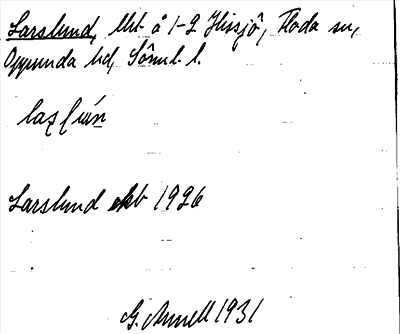 Larslund, lht å 1-2 Hissjö, Floda sn,
Oppunda hd, Söml. l.
Larslund ekb 1926
G. Annell 1931